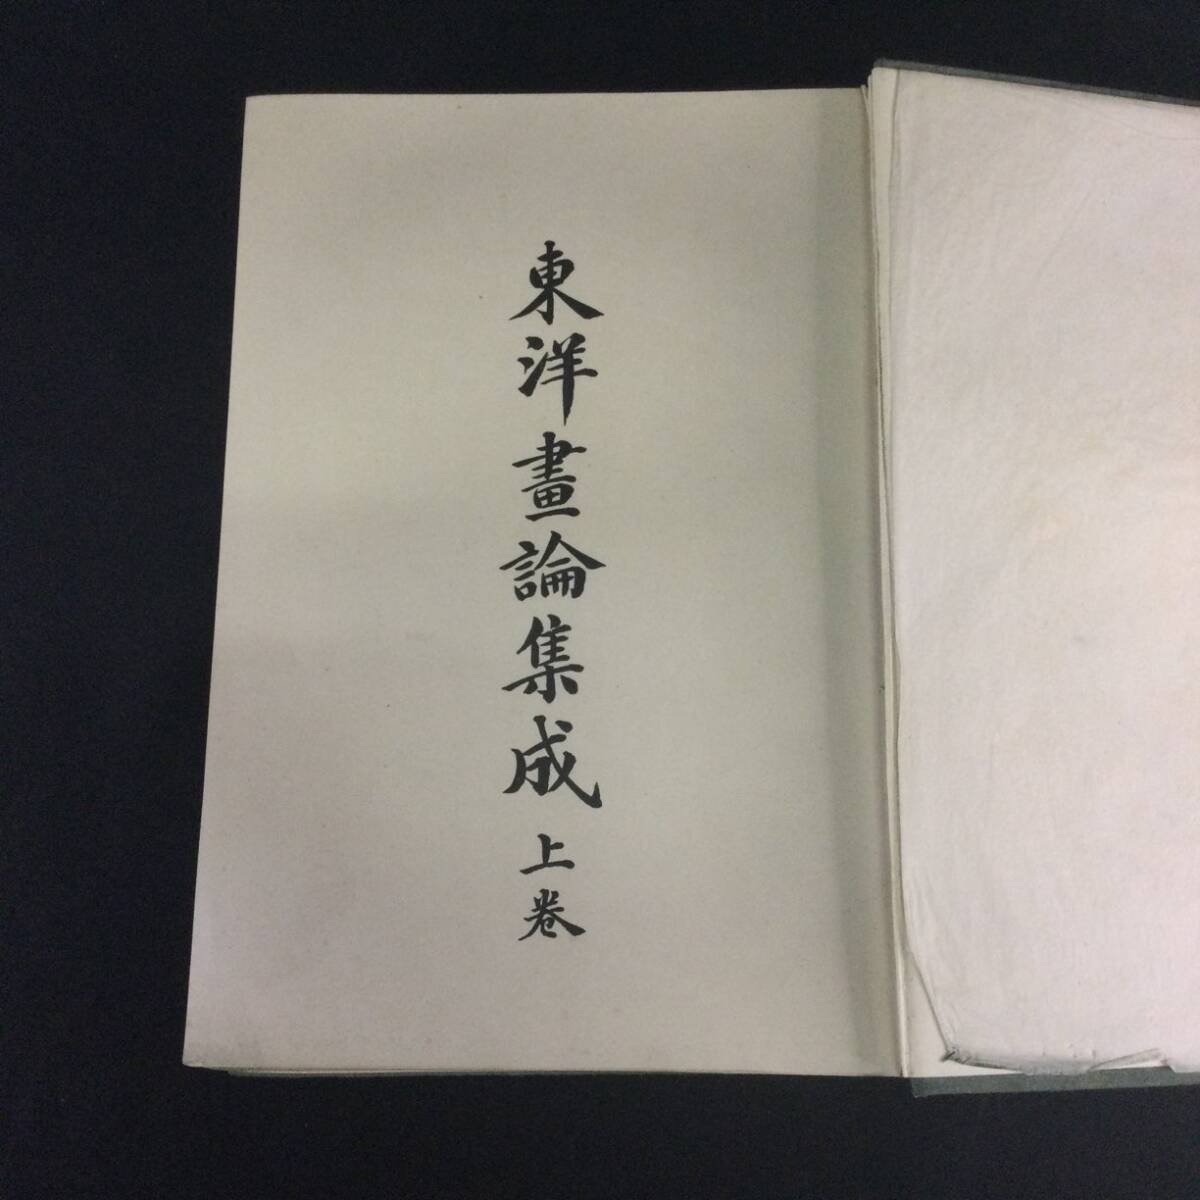 東洋畫論集成 上卷